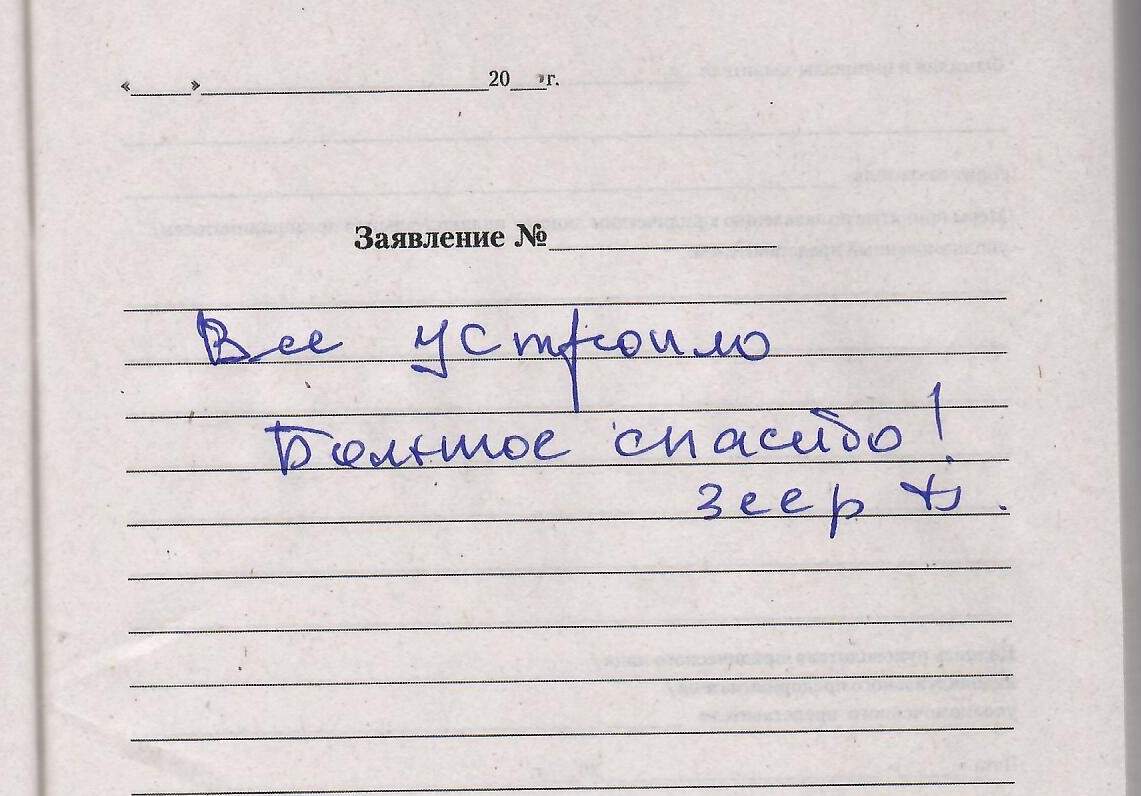 «_____»________________________20___г.
Заявление №___________________
Все устроило
Большое спасибо!
Зеер